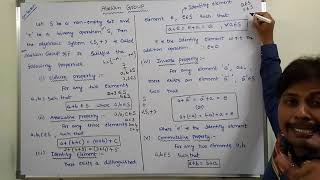 Abelian Group
Let S be a non-empty set and
'*' be a binary operation S. Then
the algebraic system (S, *) is called
Abelian group iff it satisfies the
following properties
(i) Closure property:
For any two elements
a, b ∈ S such that
a * b ∈ S where a, b ∈ S
(ii) Associative property:
For any three elements
a, b, c ∈ S such that
a * (b * c) = (a * b) * c
(iii) Identity element:
There exists a distinguished
element e, e ∈ S such that
a * e = e * a = a, ∀ a ∈ S
* is the identity element
(iv) Inverse property:
For any element a ∈ S
such that
a * a' = a' * a = e
(or)
where 'e' is the identity element
(v) Commutative property:
For any two elements a, b
∈ S such that
a * b = b * a